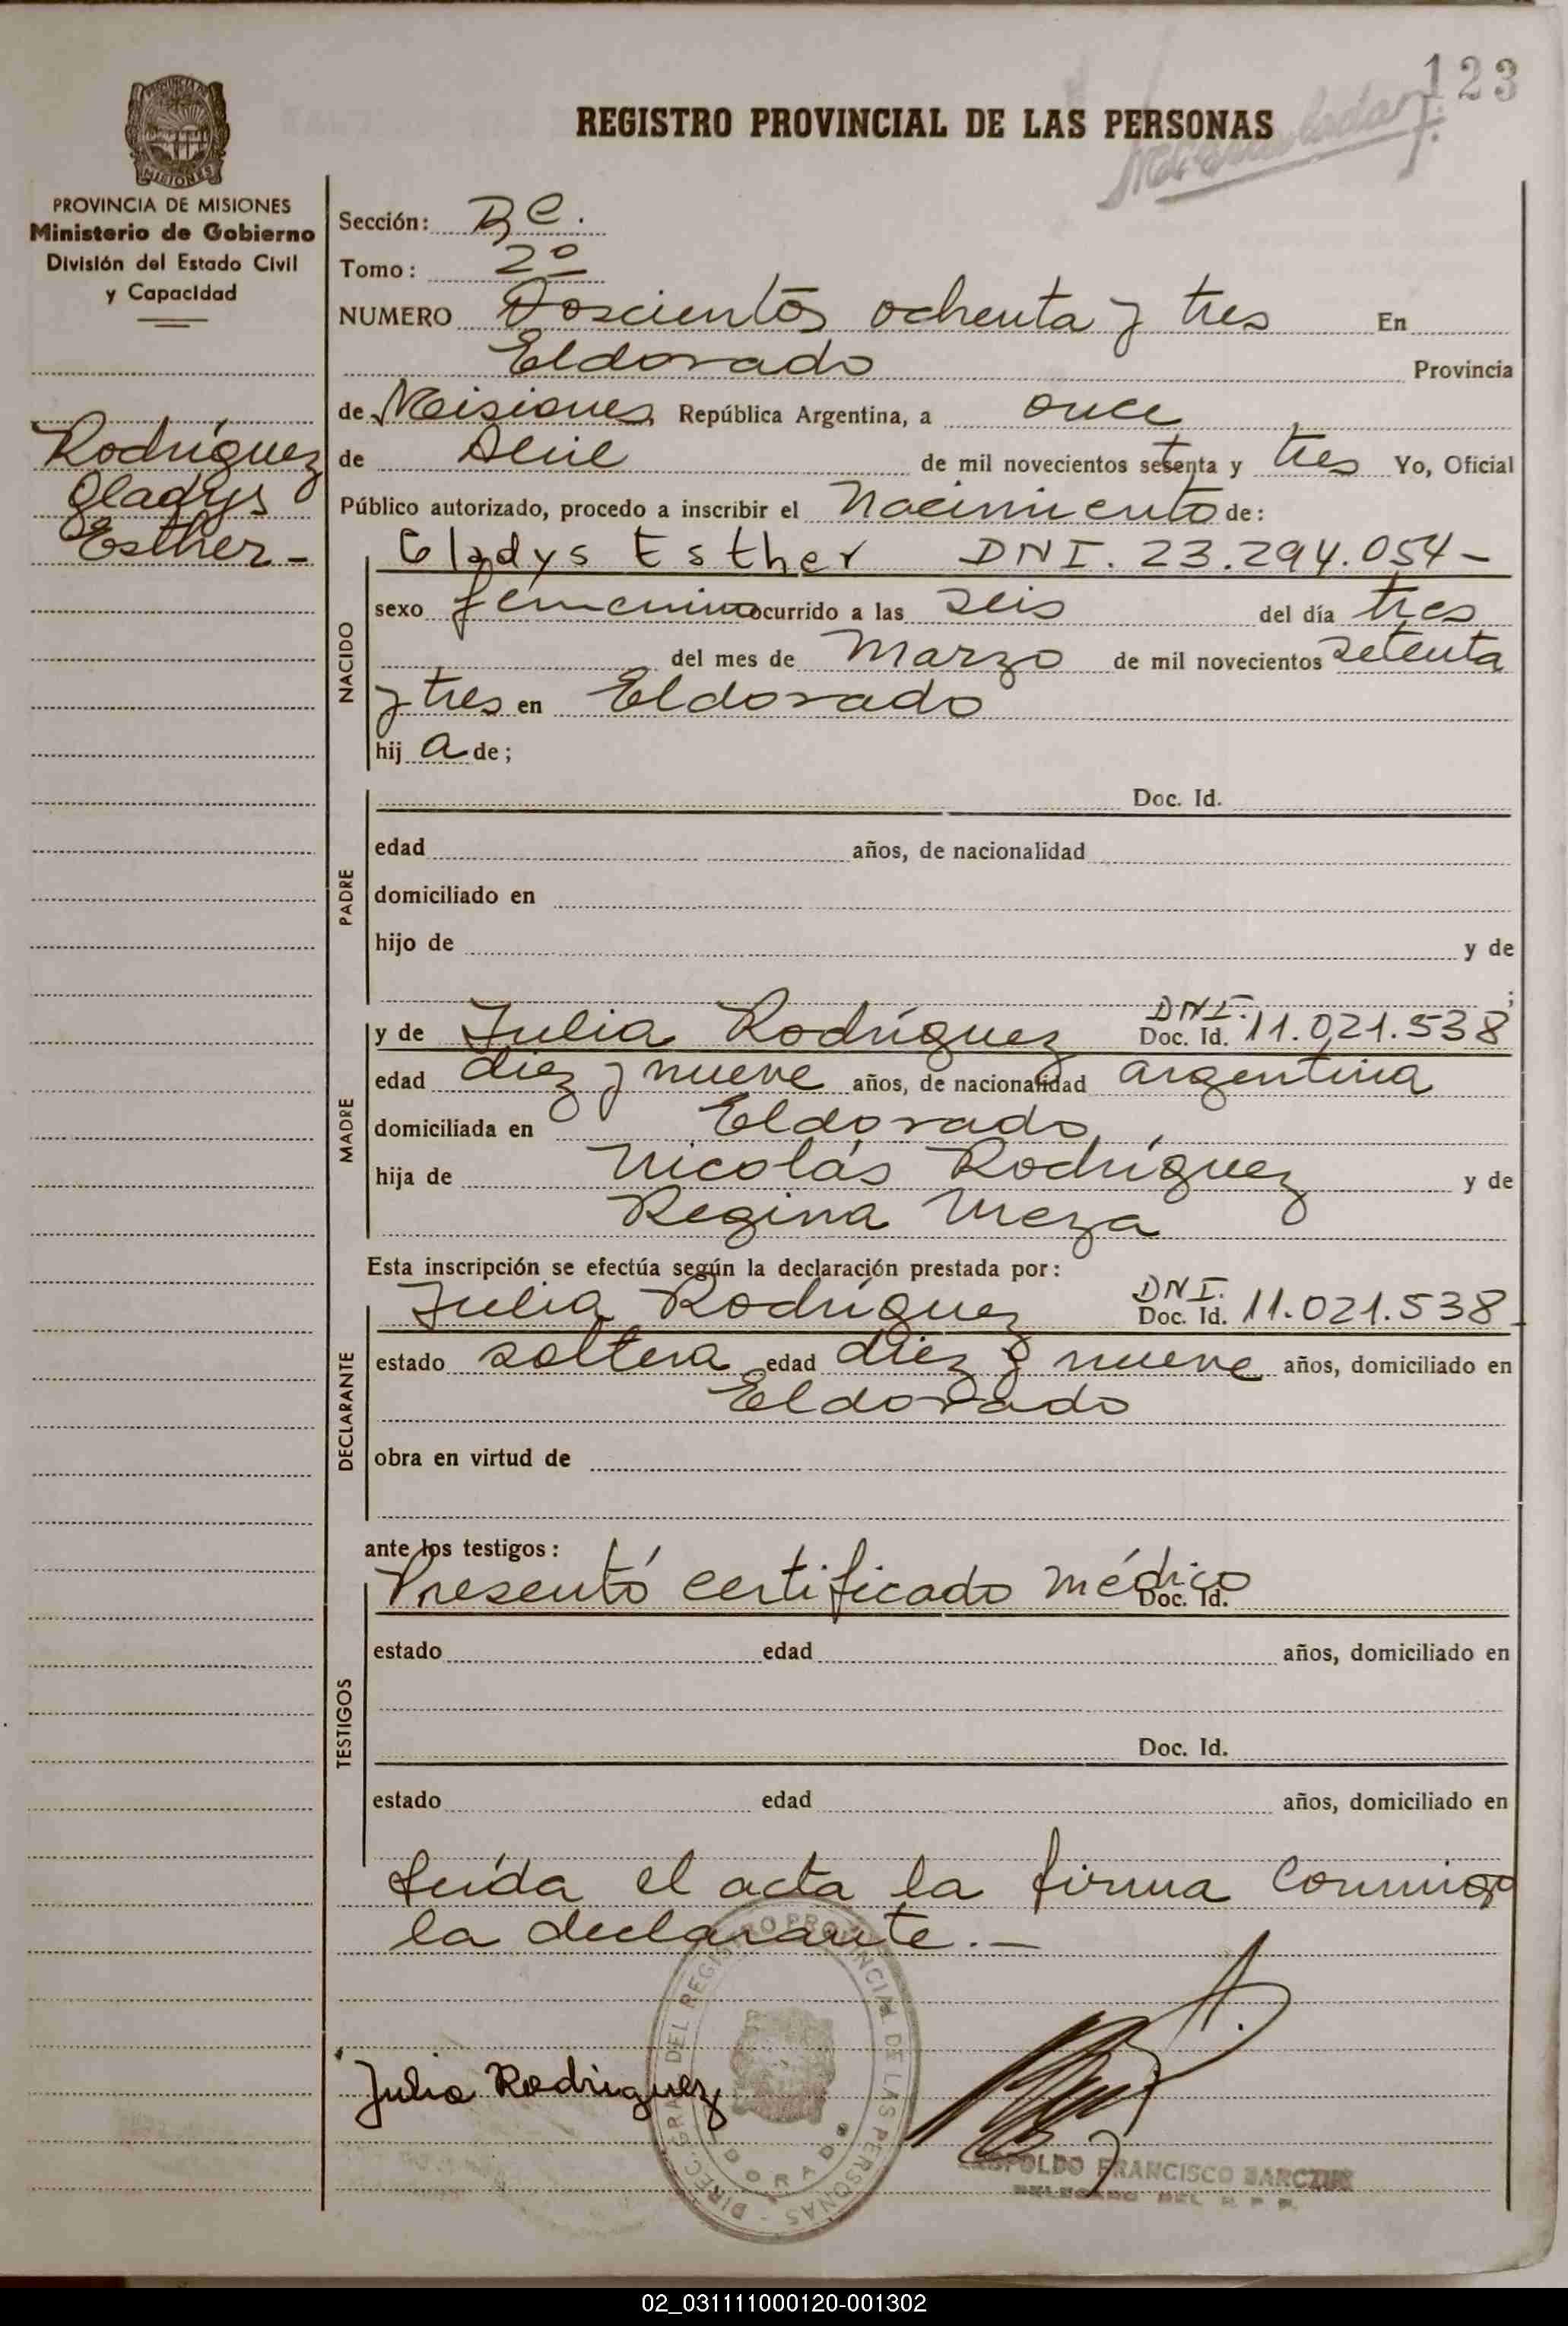 123
REGISTRO PROVINCIAL DE LAS PERSONAS
PROVINCIA DE MISIONES
Ministerio de Gobierno
División del Estado Civil
y Capacidad
Rodríguez
Gladys
Esther-
Sección:
Tomo: 2º
NUMERO Doscientos ochenta y tres En
Eldorado Provincia
de Misiones, República Argentina, a once
de Abril de mil novecientos setenta y tres Yo, Oficial
Público autorizado, procedo a inscribir el Nacimiento de:
NACIDO
Gladys Esther DNI. 23.294.054-
sexo femenino ocurrido a las seis del día tres
del mes de Marzo de mil novecientos setenta
y tres en Eldorado
hij a de;
PADRE
Doc. Id.
edad años, de nacionalidad
domiciliado en
hijo de y de
;
MADRE
DNI.
y de Julia Rodríguez Doc. Id. 11.021.538
edad diez y nueve años, de nacionalidad argentina
domiciliada en Eldorado
hija de Nicolás Rodríguez y de
Regina Meza
Esta inscripción se efectúa según la declaración prestada por:
DECLARANTE
DNI.
Julia Rodríguez Doc. Id. 11.021.538
estado soltera edad diez y nueve años, domiciliado en
Eldorado
obra en virtud de
ante los testigos:
TESTIGOS
Presentó certificado médico Doc. Id.
estado edad años, domiciliado en
Doc. Id.
estado edad años, domiciliado en
Leída el acta la firma conmigo
la declarante.-
Julia Rodriguez
DIREC. GRAL DEL REGISTRO PROVINCIAL DE LAS PERSONAS -
ELDORADO
LEOPOLDO FRANCISCO
DELEGADO DEL R. P. P.
02_031111000120-001302